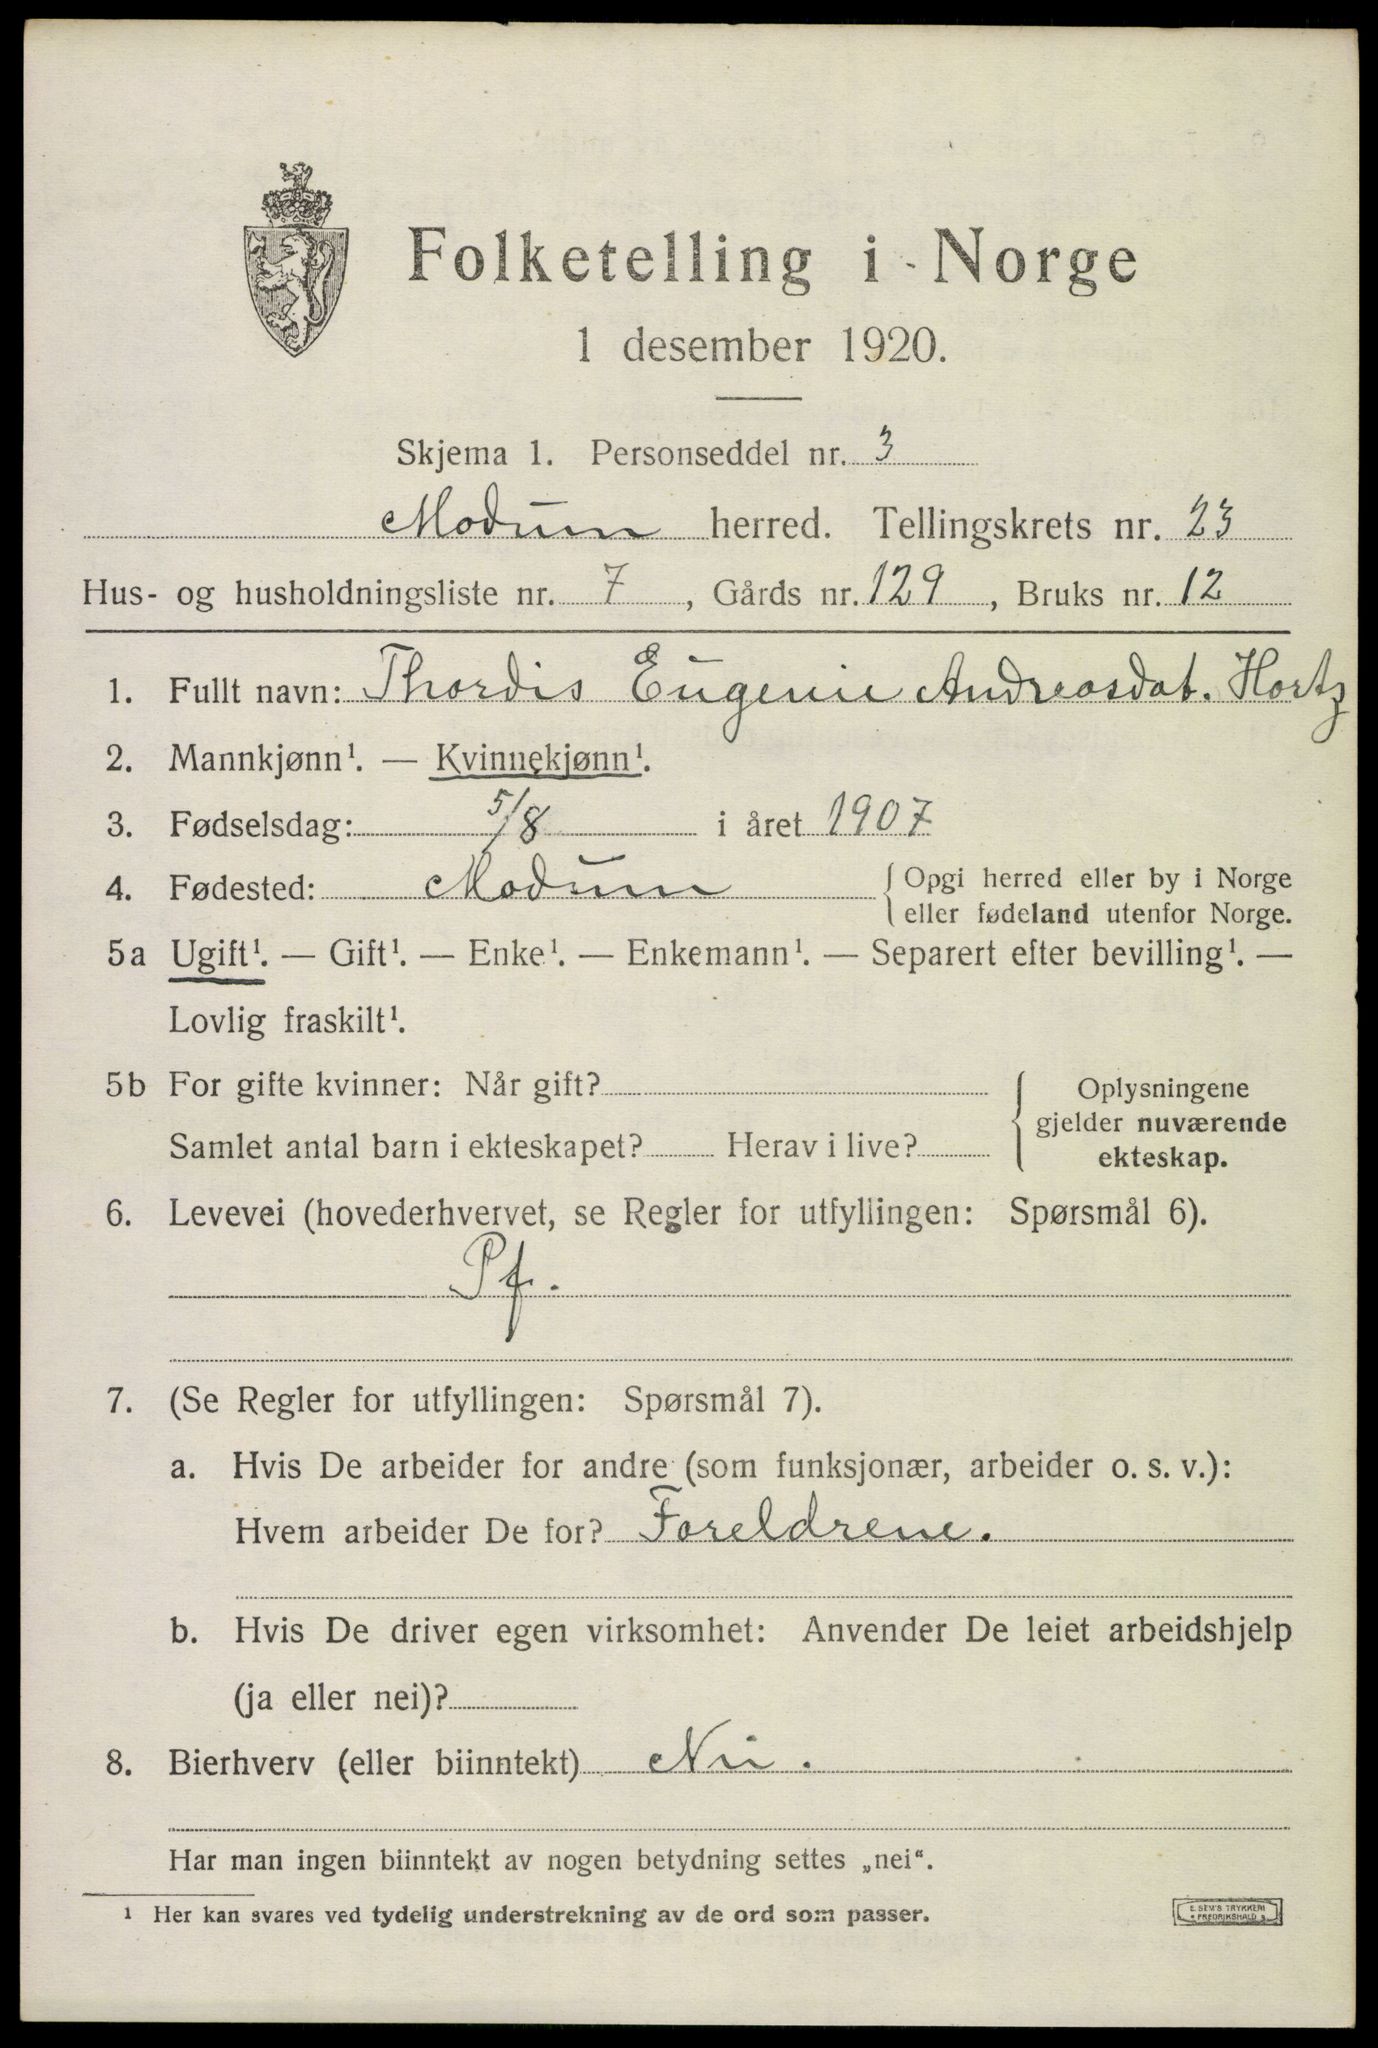 Folketelling i Norge
1 desember 1920.
Skjema 1. Personseddel nr. 3
Modum herred. Tellingskrets nr. 23
Hus- og husholdningsliste nr. 7, Gårds nr. 129, Bruks nr. 12
1. Fullt navn: Thordis Eugenie Andreasdat. Hortz
2. Mannkjønn¹. — Kvinnekjønn¹.
3. Fødselsdag: 5/8 i året 1907
4. Fødested: Modum { Opgi herred eller by i Norge
eller fødeland utenfor Norge.
5a Ugift¹. — Gift¹. — Enke¹. — Enkemann¹. — Separert efter bevilling¹. —
Lovlig fraskilt¹.
5b For gifte kvinner: Når gift?
Samlet antal barn i ekteskapet? Herav i live?
Oplysningene
gjelder nuværende
ekteskap.
6. Levevei (hovederhvervet, se Regler for utfyllingen: Spørsmål 6).
Pf.
7. (Se Regler for utfyllingen: Spørsmål 7).
a. Hvis De arbeider for andre (som funksjonær, arbeider o. s. v.):
Hvem arbeider De for? Foreldrene.
b. Hvis De driver egen virksomhet: Anvender De leiet arbeidshjelp
(ja eller nei)?
8. Bierhverv (eller biinntekt) Nei.
Har man ingen biinntekt av nogen betydning settes „nei“.
¹ Her kan svares ved tydelig understrekning av de ord som passer.
E. SEM'S TRYKKERI
FREDRIKSHALD